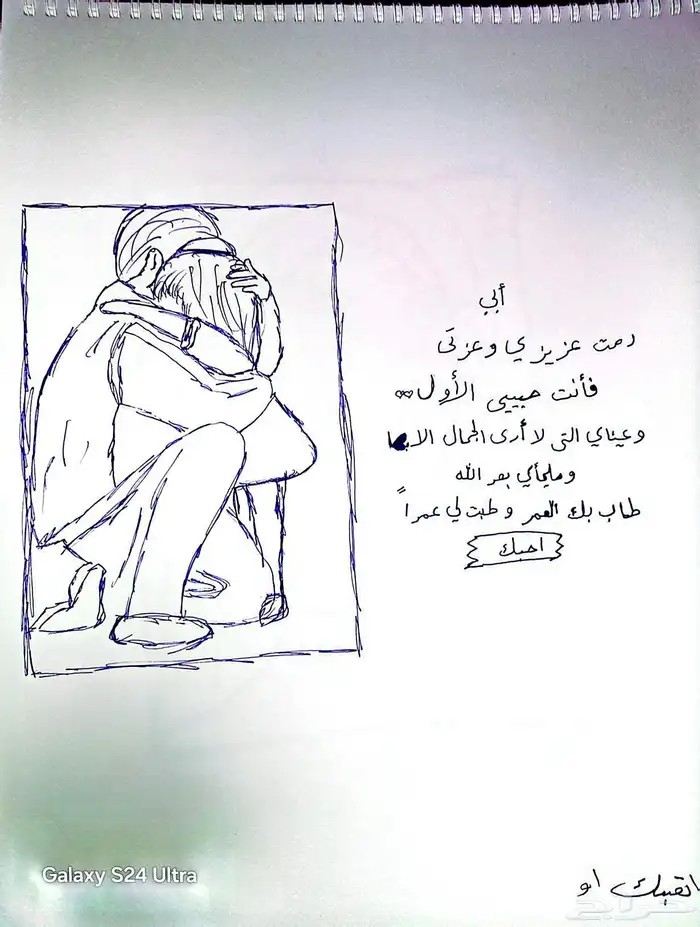 أبي
دمت عزيزي وعزتي
فأنت حبيبي الأول..
وعيناي التي لا أرى الجمال الا بها
وملجأي بعد الله
طاب بك العمر وطبت لي عمراً
احبك
Galaxy S24 Ultra
حراج